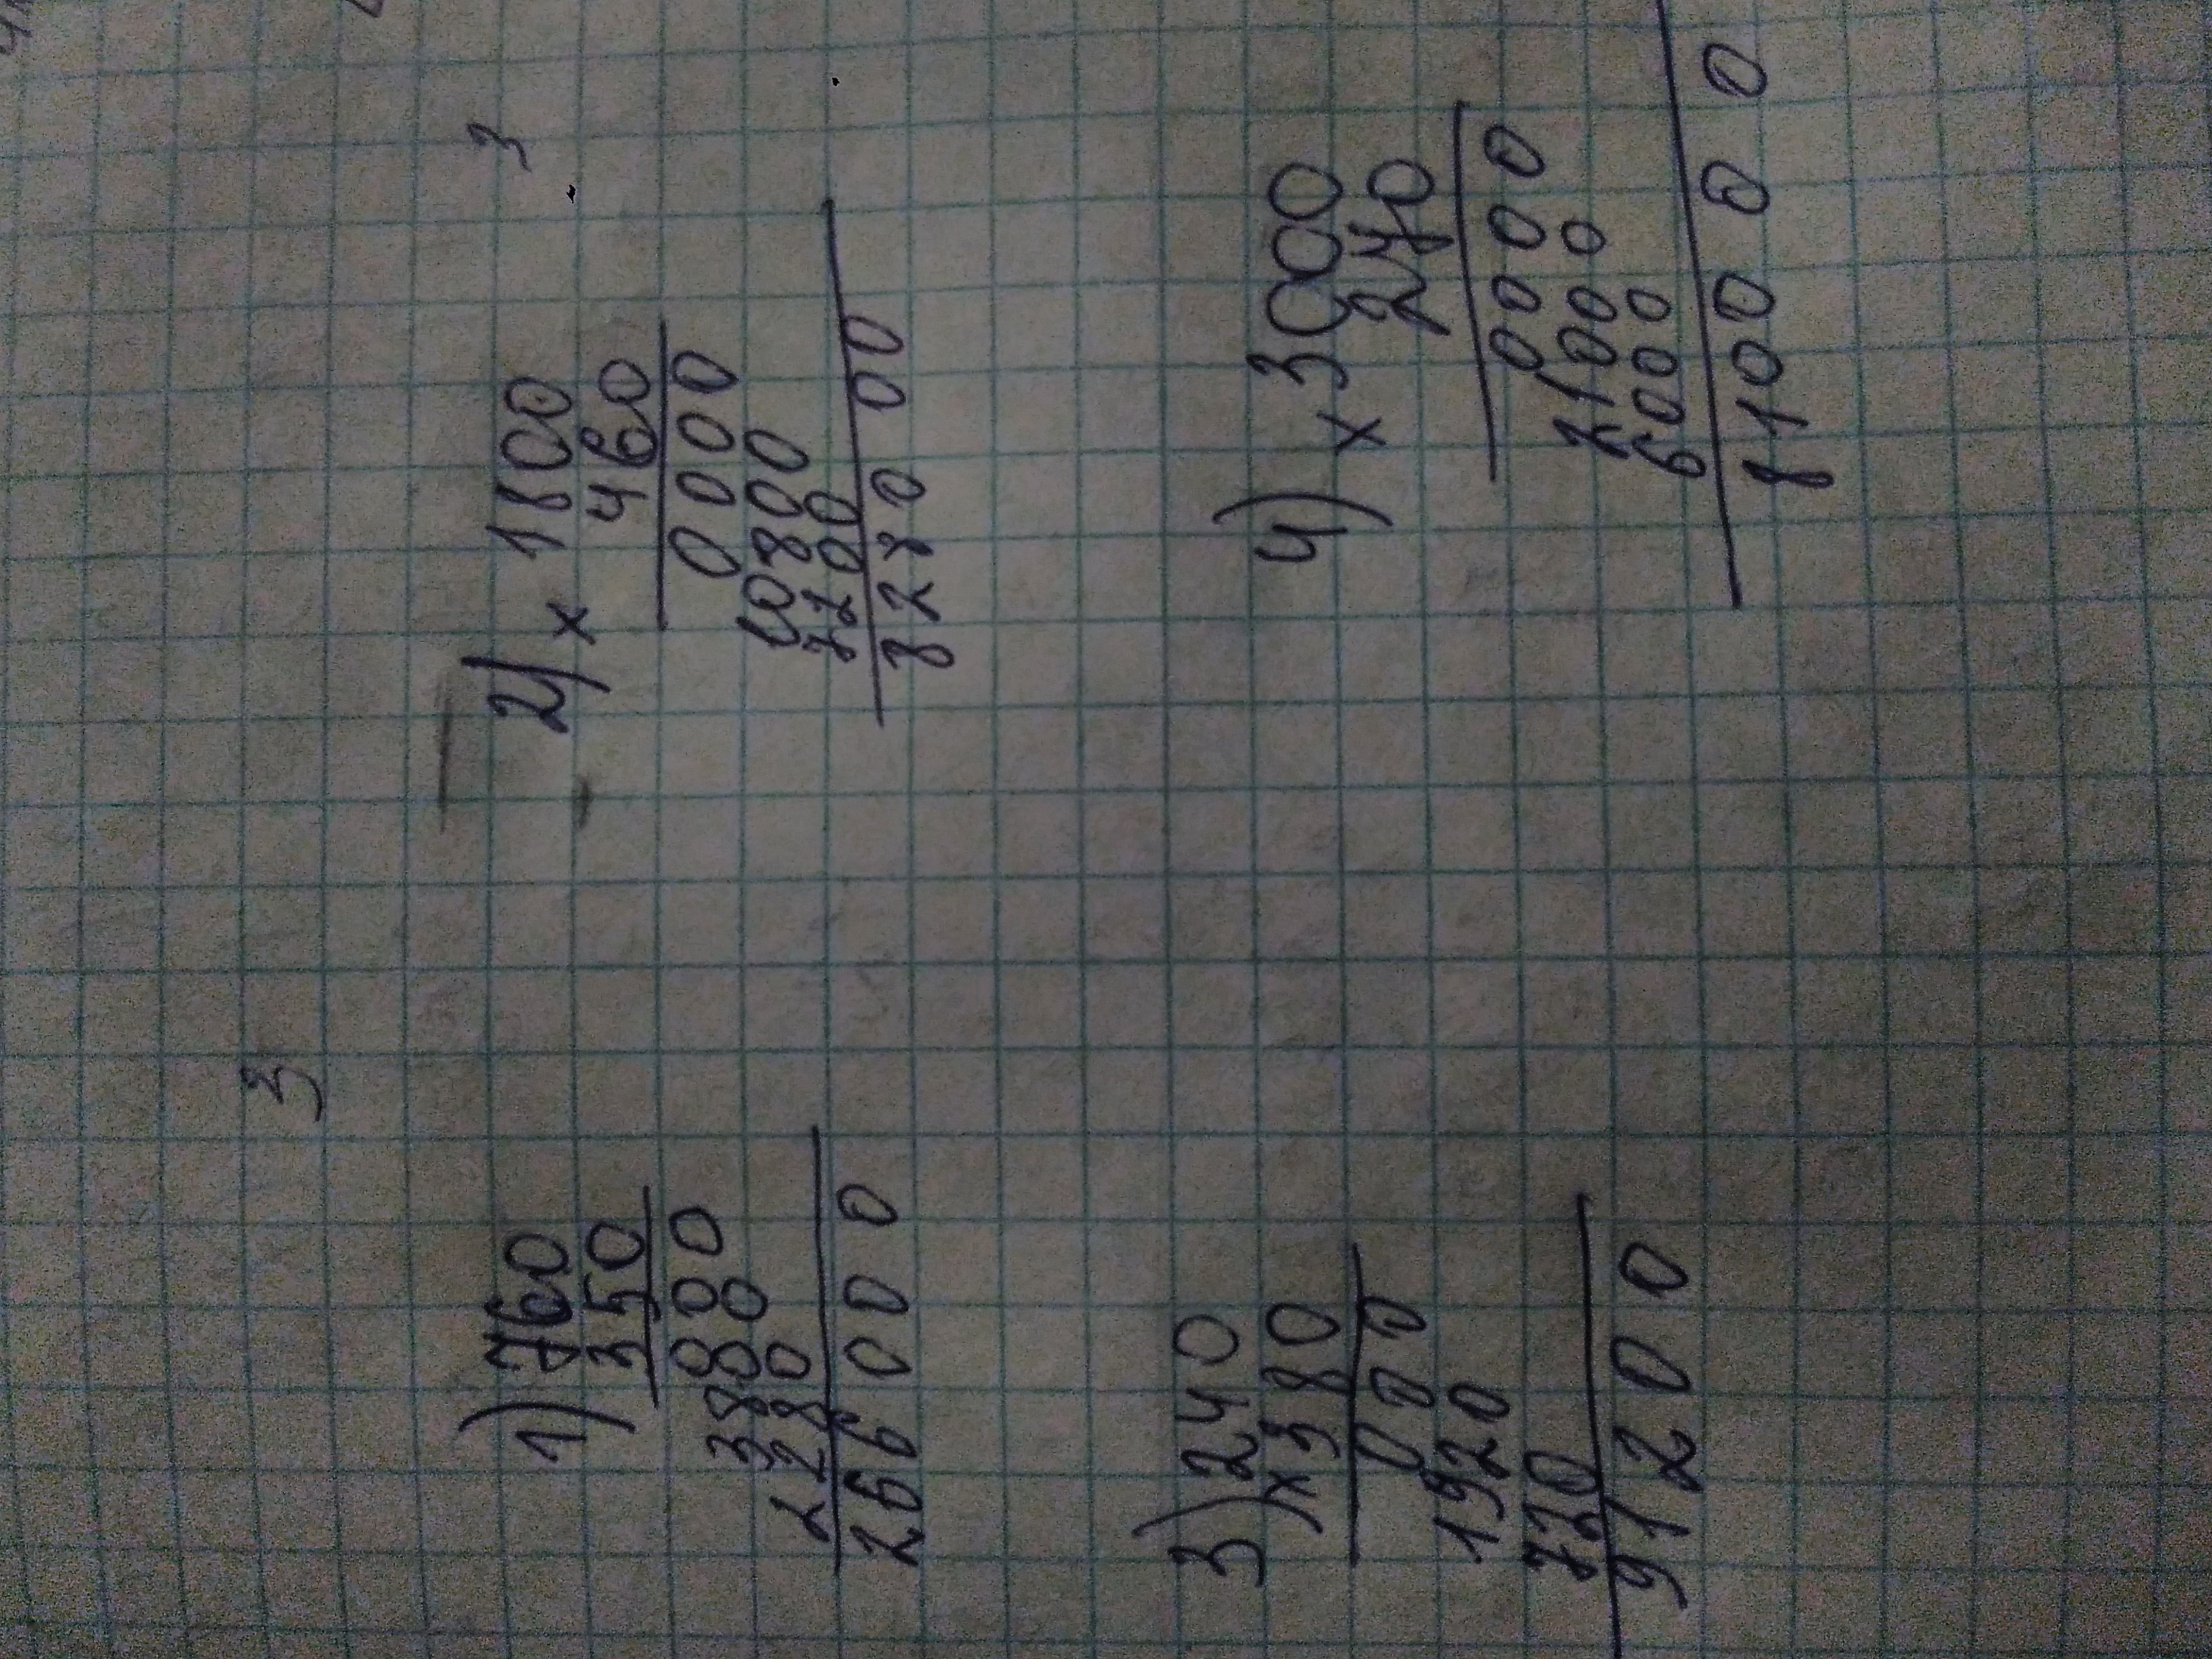 3
3
1) 760
350
000
3800
2280
266000
2) x 1800
460
0000
10800
7200
828000
3) 240
x 380
000
1920
720
91200
4) x 3000
270
0000
21000
6000
810000